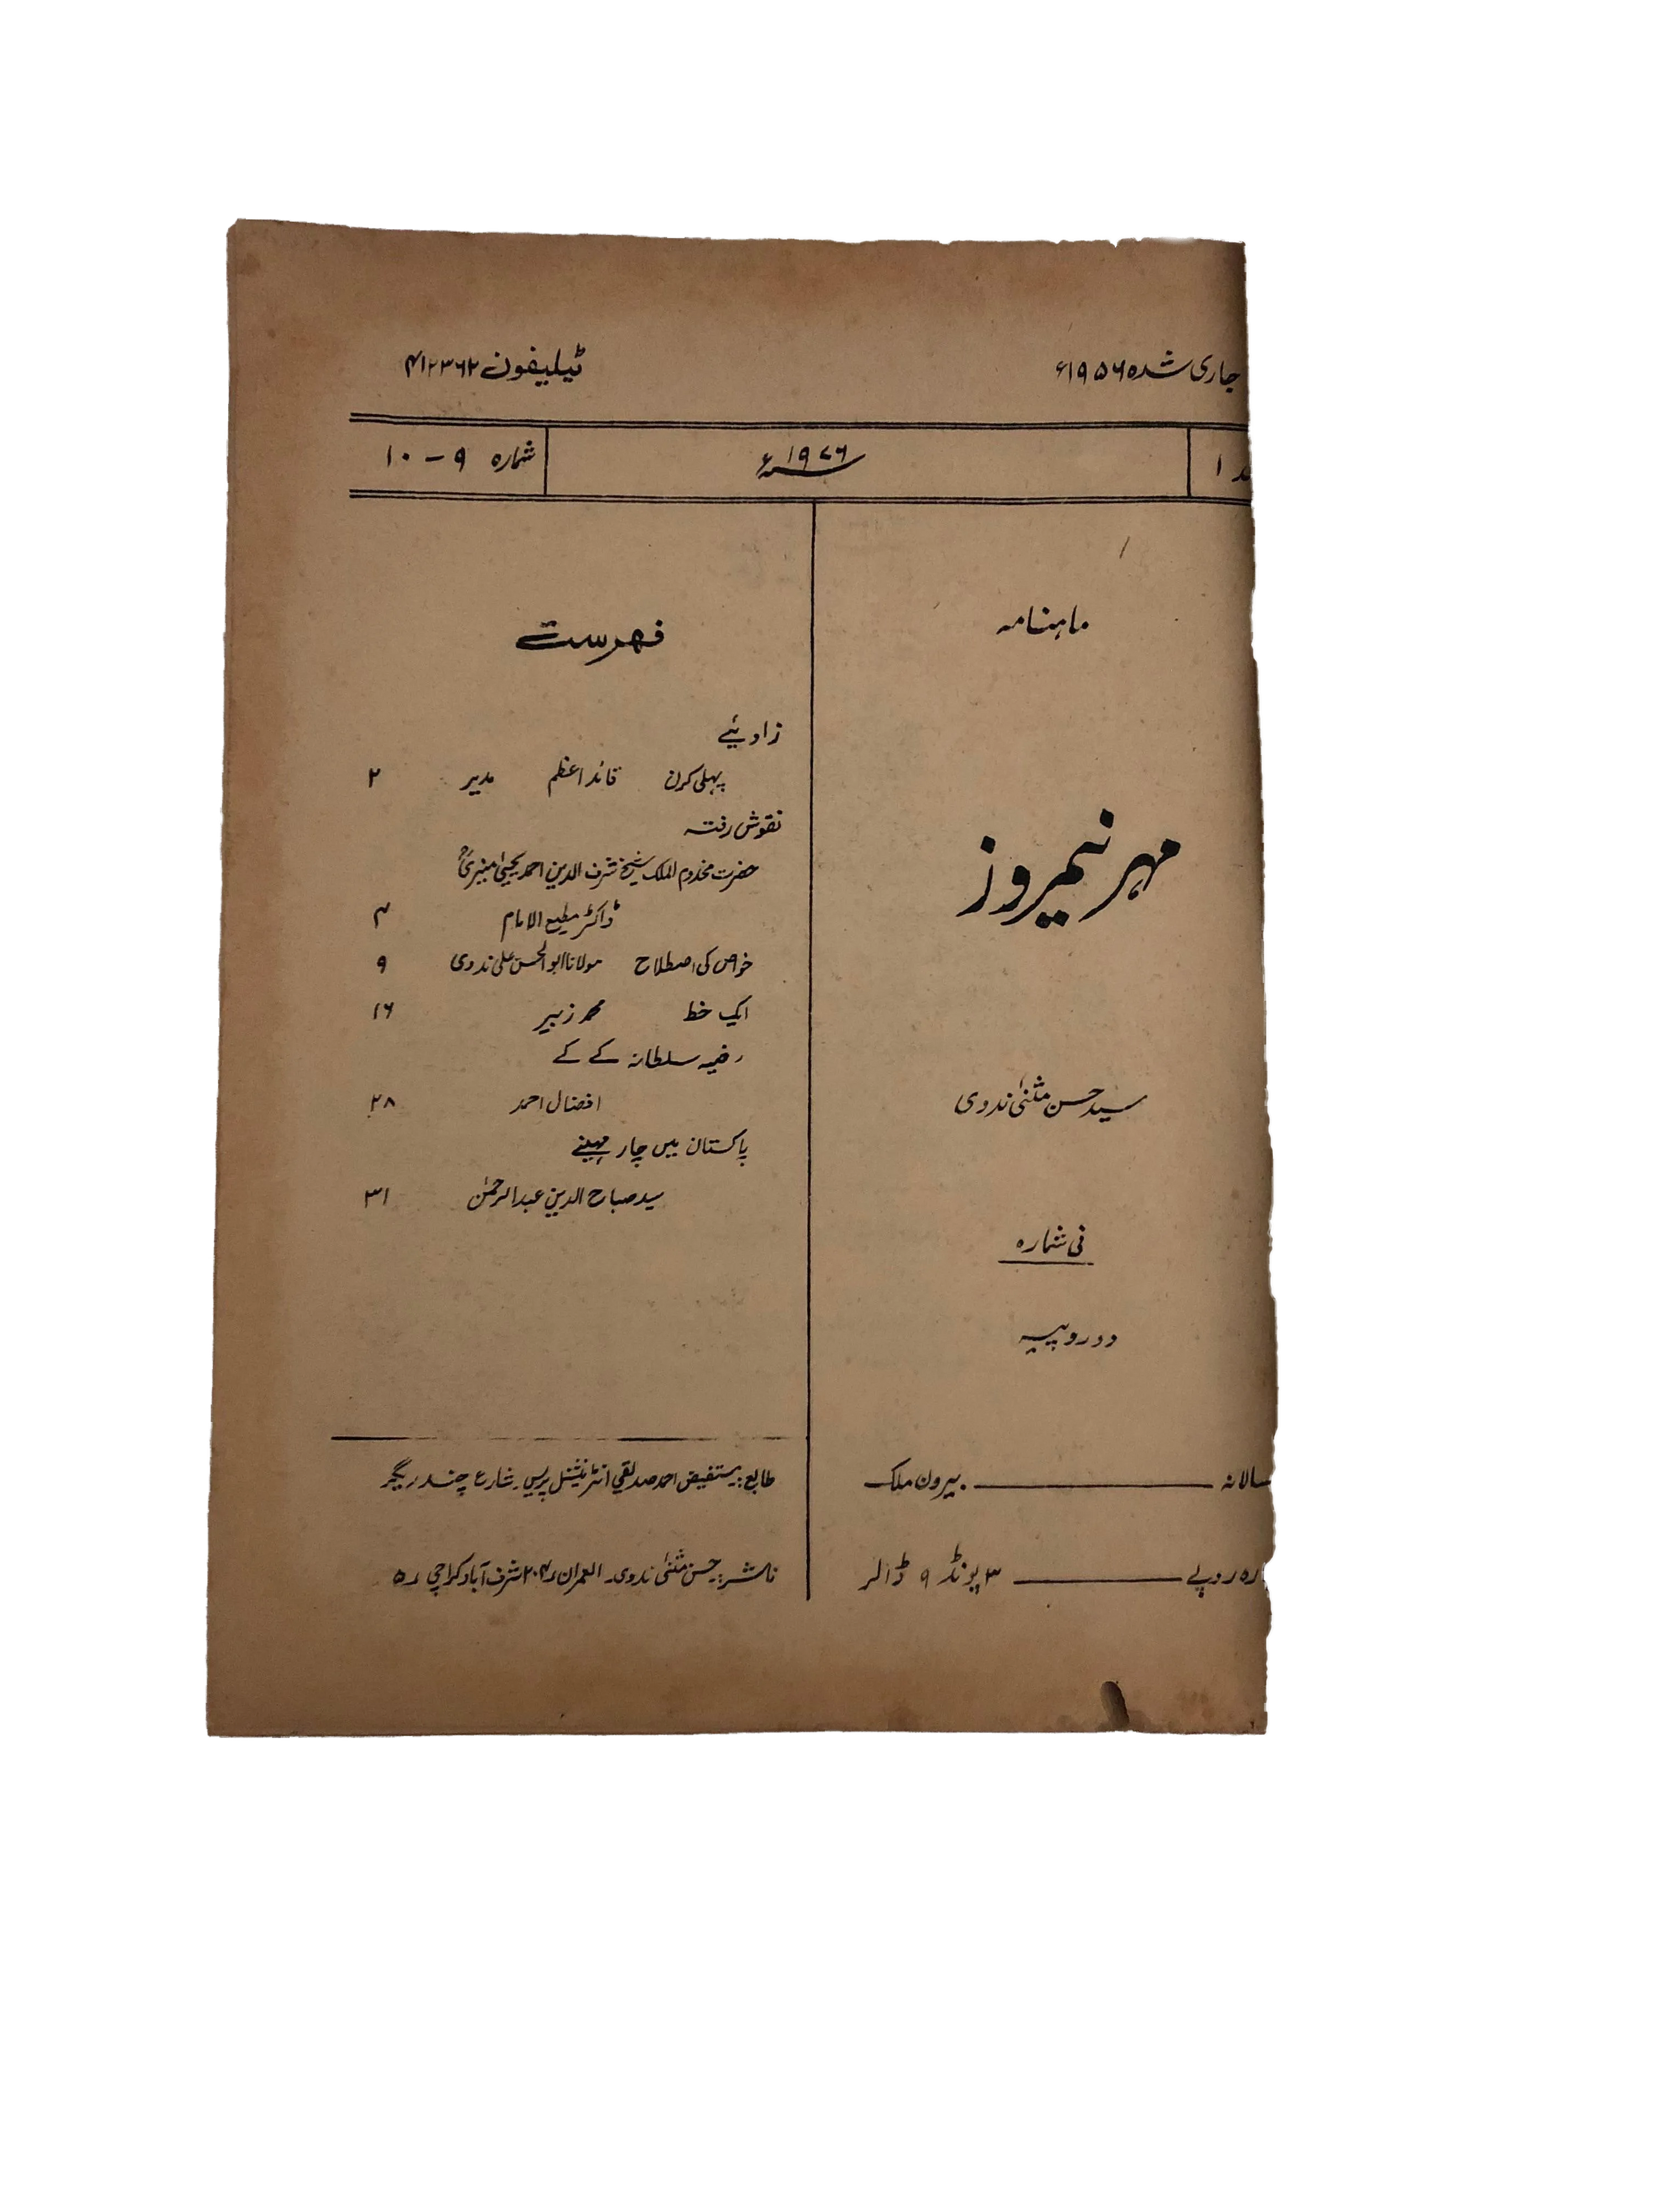 جاری شدہ ۱۹۵۶ء
ٹیلیفون ۴۱۲۳۶۲
۱
۱۹۷۶ء
شمارہ ۹ – ۱۰
ماہنامہ
مہر نیمروز
سید حسن مثنیٰ ندوی
فی شمارہ
دو روپیہ
سالانہ ــــــ بیرون ملک
روپے ــــــ ۳ پونڈ ۹ ڈالر
فہرست
زاویئے
پہلی کرن قائد اعظم مدیر ۲
نقوش رفتہ
حضرت مخدوم الملک شیخ شرف الدین احمد یحییٰ منیریؒ
ڈاکٹر مطیع الامام ۳
خواص کی اصطلاح مولانا ابوالحسن علی ندوی ۹
ایک خط محمد زبیر ۱۶
رضیہ سلطانہ کے کے
افضال احمد ۲۸
پاکستان میں چار مہینے
سید صباح الدین عبدالرحمٰن ۳۱
طابع: مستفیض احمد صدیقی انٹرنیشنل پریس۔ شارع چندریگر
ناشر: حسن مثنیٰ ندوی۔ العمران ۲۰۴ شرف آباد کراچی ۵